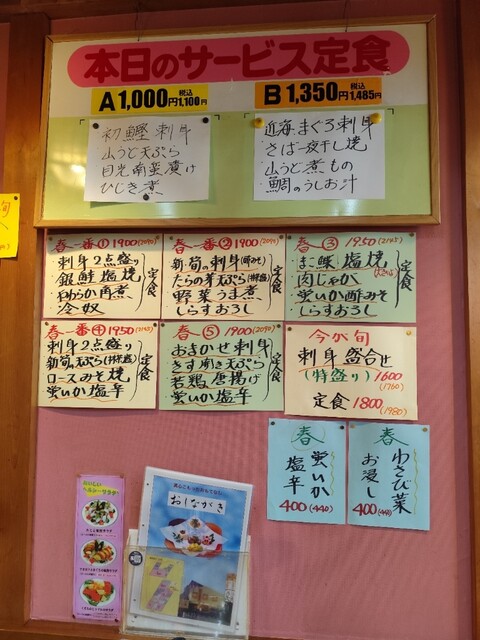 本日のサービス定食
A 1,000円 税込 1,100円
B 1,350円 税込 1,485円
初鰹刺身
山うど天ぷら
目光南蛮漬け
ひじき煮
近海まぐろ刺身
さば一夜干し焼
山うど煮もの
鯛のうしお汁
春一番① 1900(2090)
刺身2点盛り
銀鮭塩焼
やわらか角煮
冷奴
定食
春一番② 1900(2090)
新・旬の刺身(酢みそ)
たらの芽天ぷら(特盛)
野菜うま煮
しらすおろし
定食
春③ 1950(2145)
塩焼
肉じゃが
蛍いか酢みそ
しらすおろし
定食
春一番④ 1950(2145)
刺身2点盛り
新旬の天ぷら(特盛)
ロースみそ焼
蛍いか塩辛
定食
春⑤ 1900(2090)
おまかせ刺身
きす開き天ぷら
若鶏唐揚げ
蛍いか塩辛
定食
今が旬
刺身盛合せ
(特盛り) 1600
(1760)
定食 1800
(1980)
春
蛍いか
塩辛
400(440)
春
わさび菜
お浸し
400(440)
おいしい
ヘルシーサラダ!
おしながき
旬